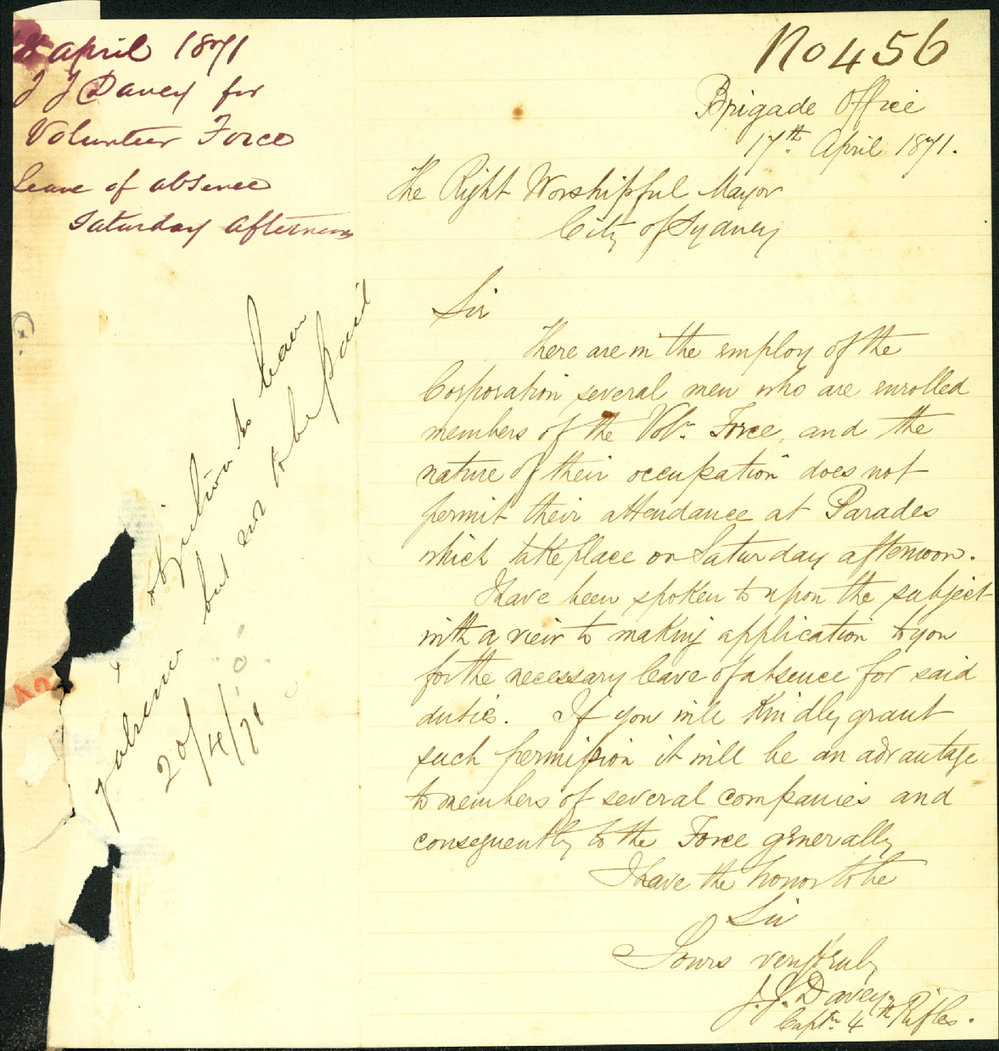 April 1871
J J Davey for
Volunteer Force
leave of absence
Saturday afternoon
No 456
Brigade Office
17th April 1871.
The Right Worshipful Mayor
City of Sydney
Sir
There are in the employ of the
Corporation, several men who are enrolled
members of the Volr. Force, and the
nature of their occupation does not
permit their attendance at Parades
which take place on Saturday afternoon.
I have been spoken to upon the subject
with a view to making application to you
for the necessary leave of absence for said
duties. If you will Kindly grant
such permission it will be an advantage
to members of several companies and
consequently to the Force generally
I have the honor to be
Sir
Yours very truly
J. J. Davey
Captn. 4th Rifles.
objection to leave
of absence but not to be paid
20/4/71
No